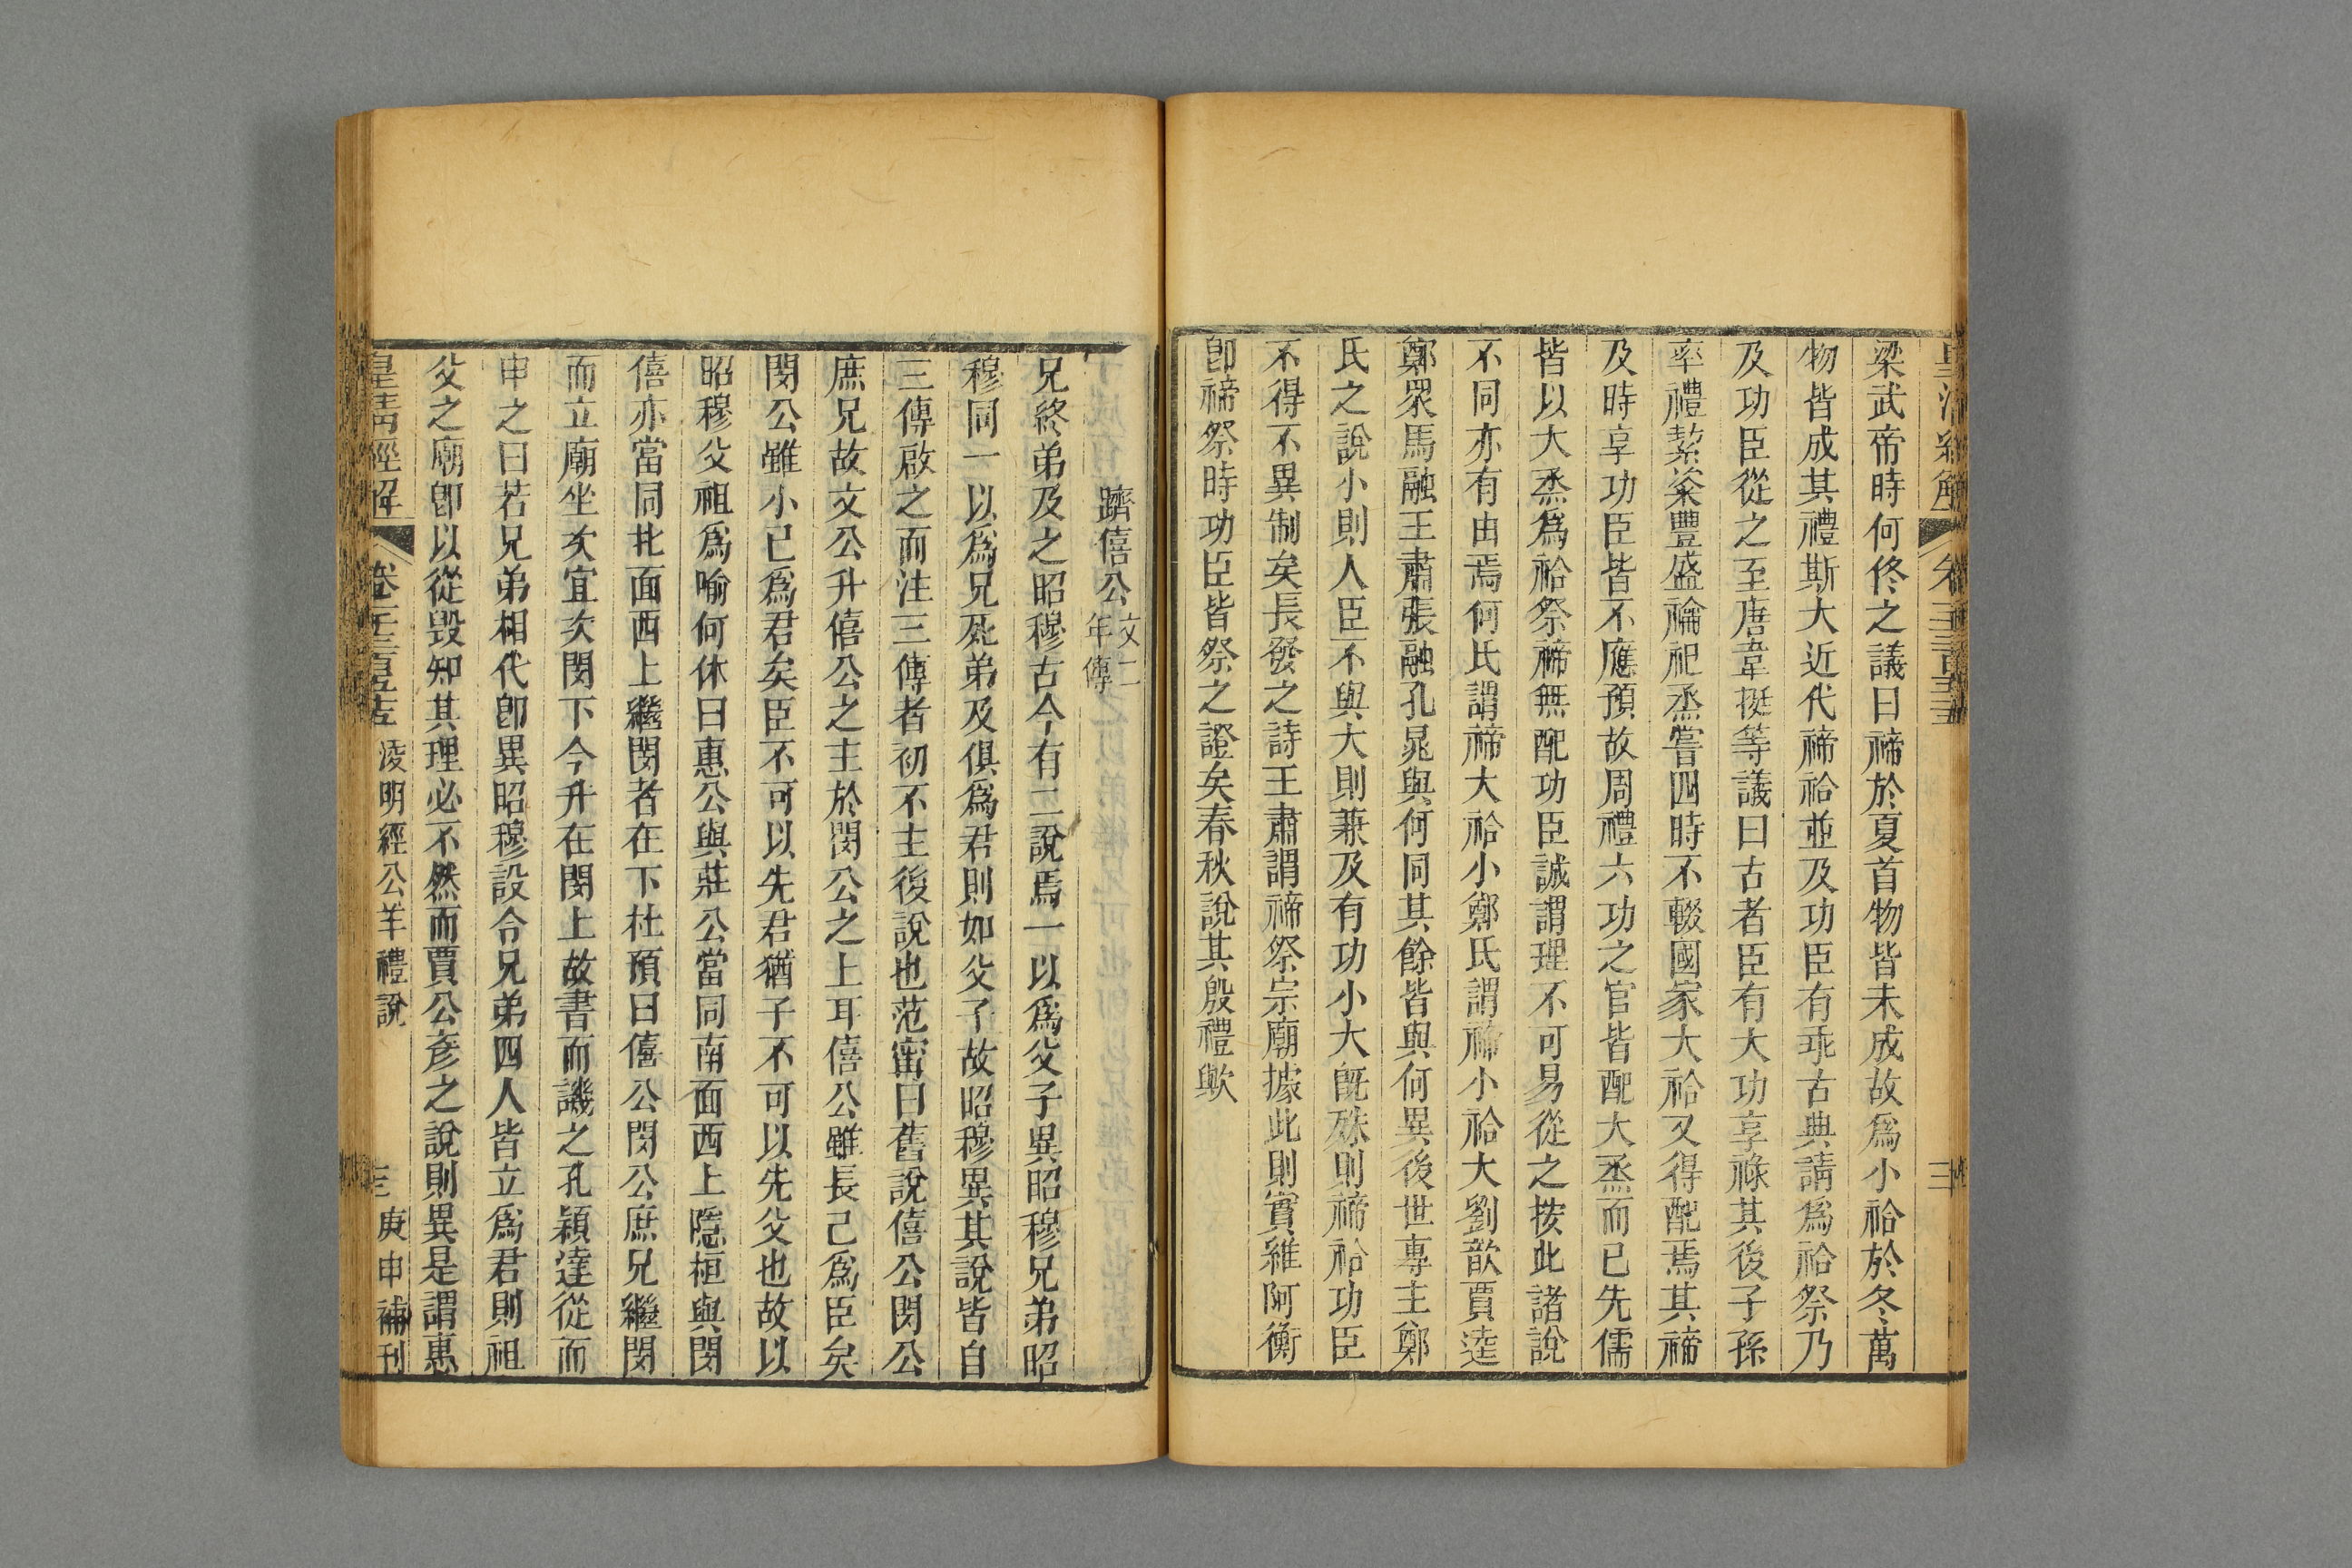 梁武帝時何佟之議曰禘於夏首物皆未成故爲小祫於冬萬
物皆成其禮斯大近代禘祫並及功臣有乖古典請爲祫祭乃
及功臣從之至唐韋挺等議曰古者臣有大功享祿其後子孫
率禮絜粢豐盛禴祀烝嘗四時不輟國家大祫又得配焉其禘
及時享功臣皆不應預故周禮六功之官皆配大烝而已先儒
皆以大烝爲祫祭禘無配功臣誠謂理不可易從之按此諸說
不同亦有由焉何氏謂禘大祫小鄭氏謂禘小祫大劉歆賈逵
鄭衆馬融王肅張融孔晁與何同其餘皆與何異後世專主鄭
氏之說小則人臣不與大則兼及有功小大旣殊則禘祫功臣
不得不異制矣長發之詩王肅謂禘祭宗廟據此則實維阿衡
卽禘祭時功臣皆祭之證矣春秋說其殷禮歟
躋僖公文二年傳
兄終弟及之昭穆古今有二說焉一以爲父子異昭穆兄弟昭
穆同一以爲兄死弟及俱爲君則如父子故昭穆異其說皆自
三傳啟之而注三傳者初不主後說也范甯曰舊說僖公閔公
庶兄故文公升僖公之主於閔公之上耳僖公雖長已爲臣矣
閔公雖小已爲君矣臣不可以先君猶子不可以先父也故以
昭穆父祖爲喻何休曰惠公與莊公當同南面西上隱桓與閔
僖亦當同北面西上繼閔者在下杜預曰僖公閔公庶兄繼閔
而立廟坐次宜次閔下今升在閔上故書而譏之孔穎達從而
申之曰若兄弟相代卽異昭穆設令兄弟四人皆立爲君則祖
父之廟卽以從毀知其理必不然而賈公彥之說則異是謂惠
皇清經解
淩明經公羊禮說
庚申補刊